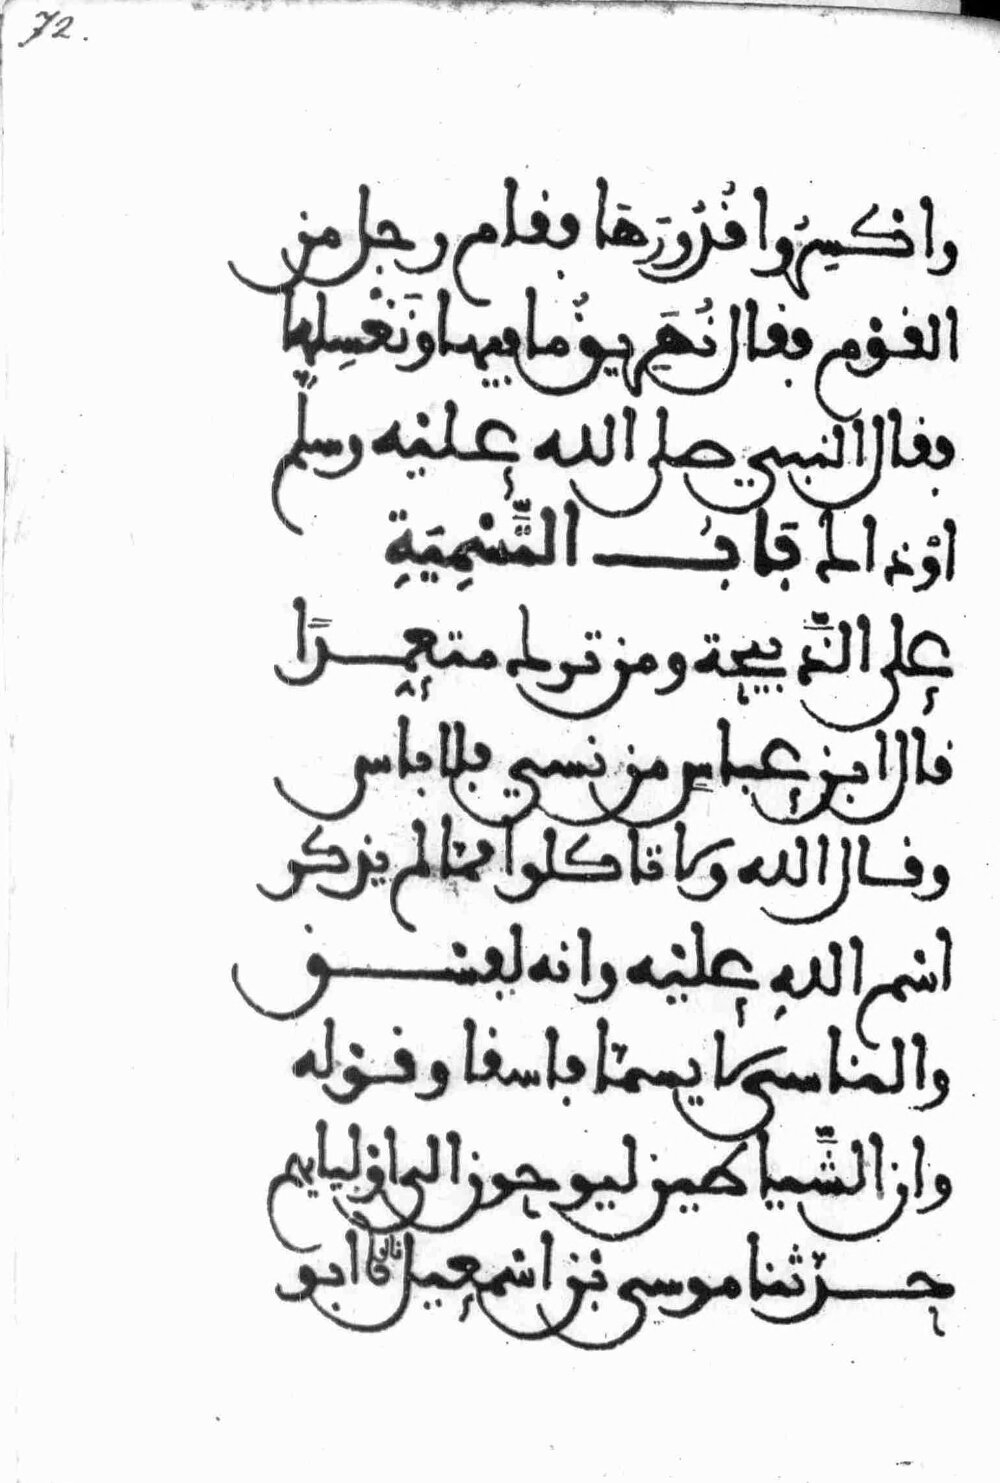 72.
واكسروا قدورها فقام رجل من
القوم فقال نهريق ما فيها ونغسلها
فقال النبي صلى الله عليه وسلم
اوذاك باب التسمية
على الذبيحة ومن ترك متعمدا
قال ابن عباس من نسي فلا باس
وقال الله ولا تاكلوا مما لم يذكر
اسم الله عليه وانه لفسق
والناسي لا يسمى فاسقا وقوله
وان الشياطين ليوحون الى اوليايهم
حدثنا موسى بن اسمعيل قال نا ابو